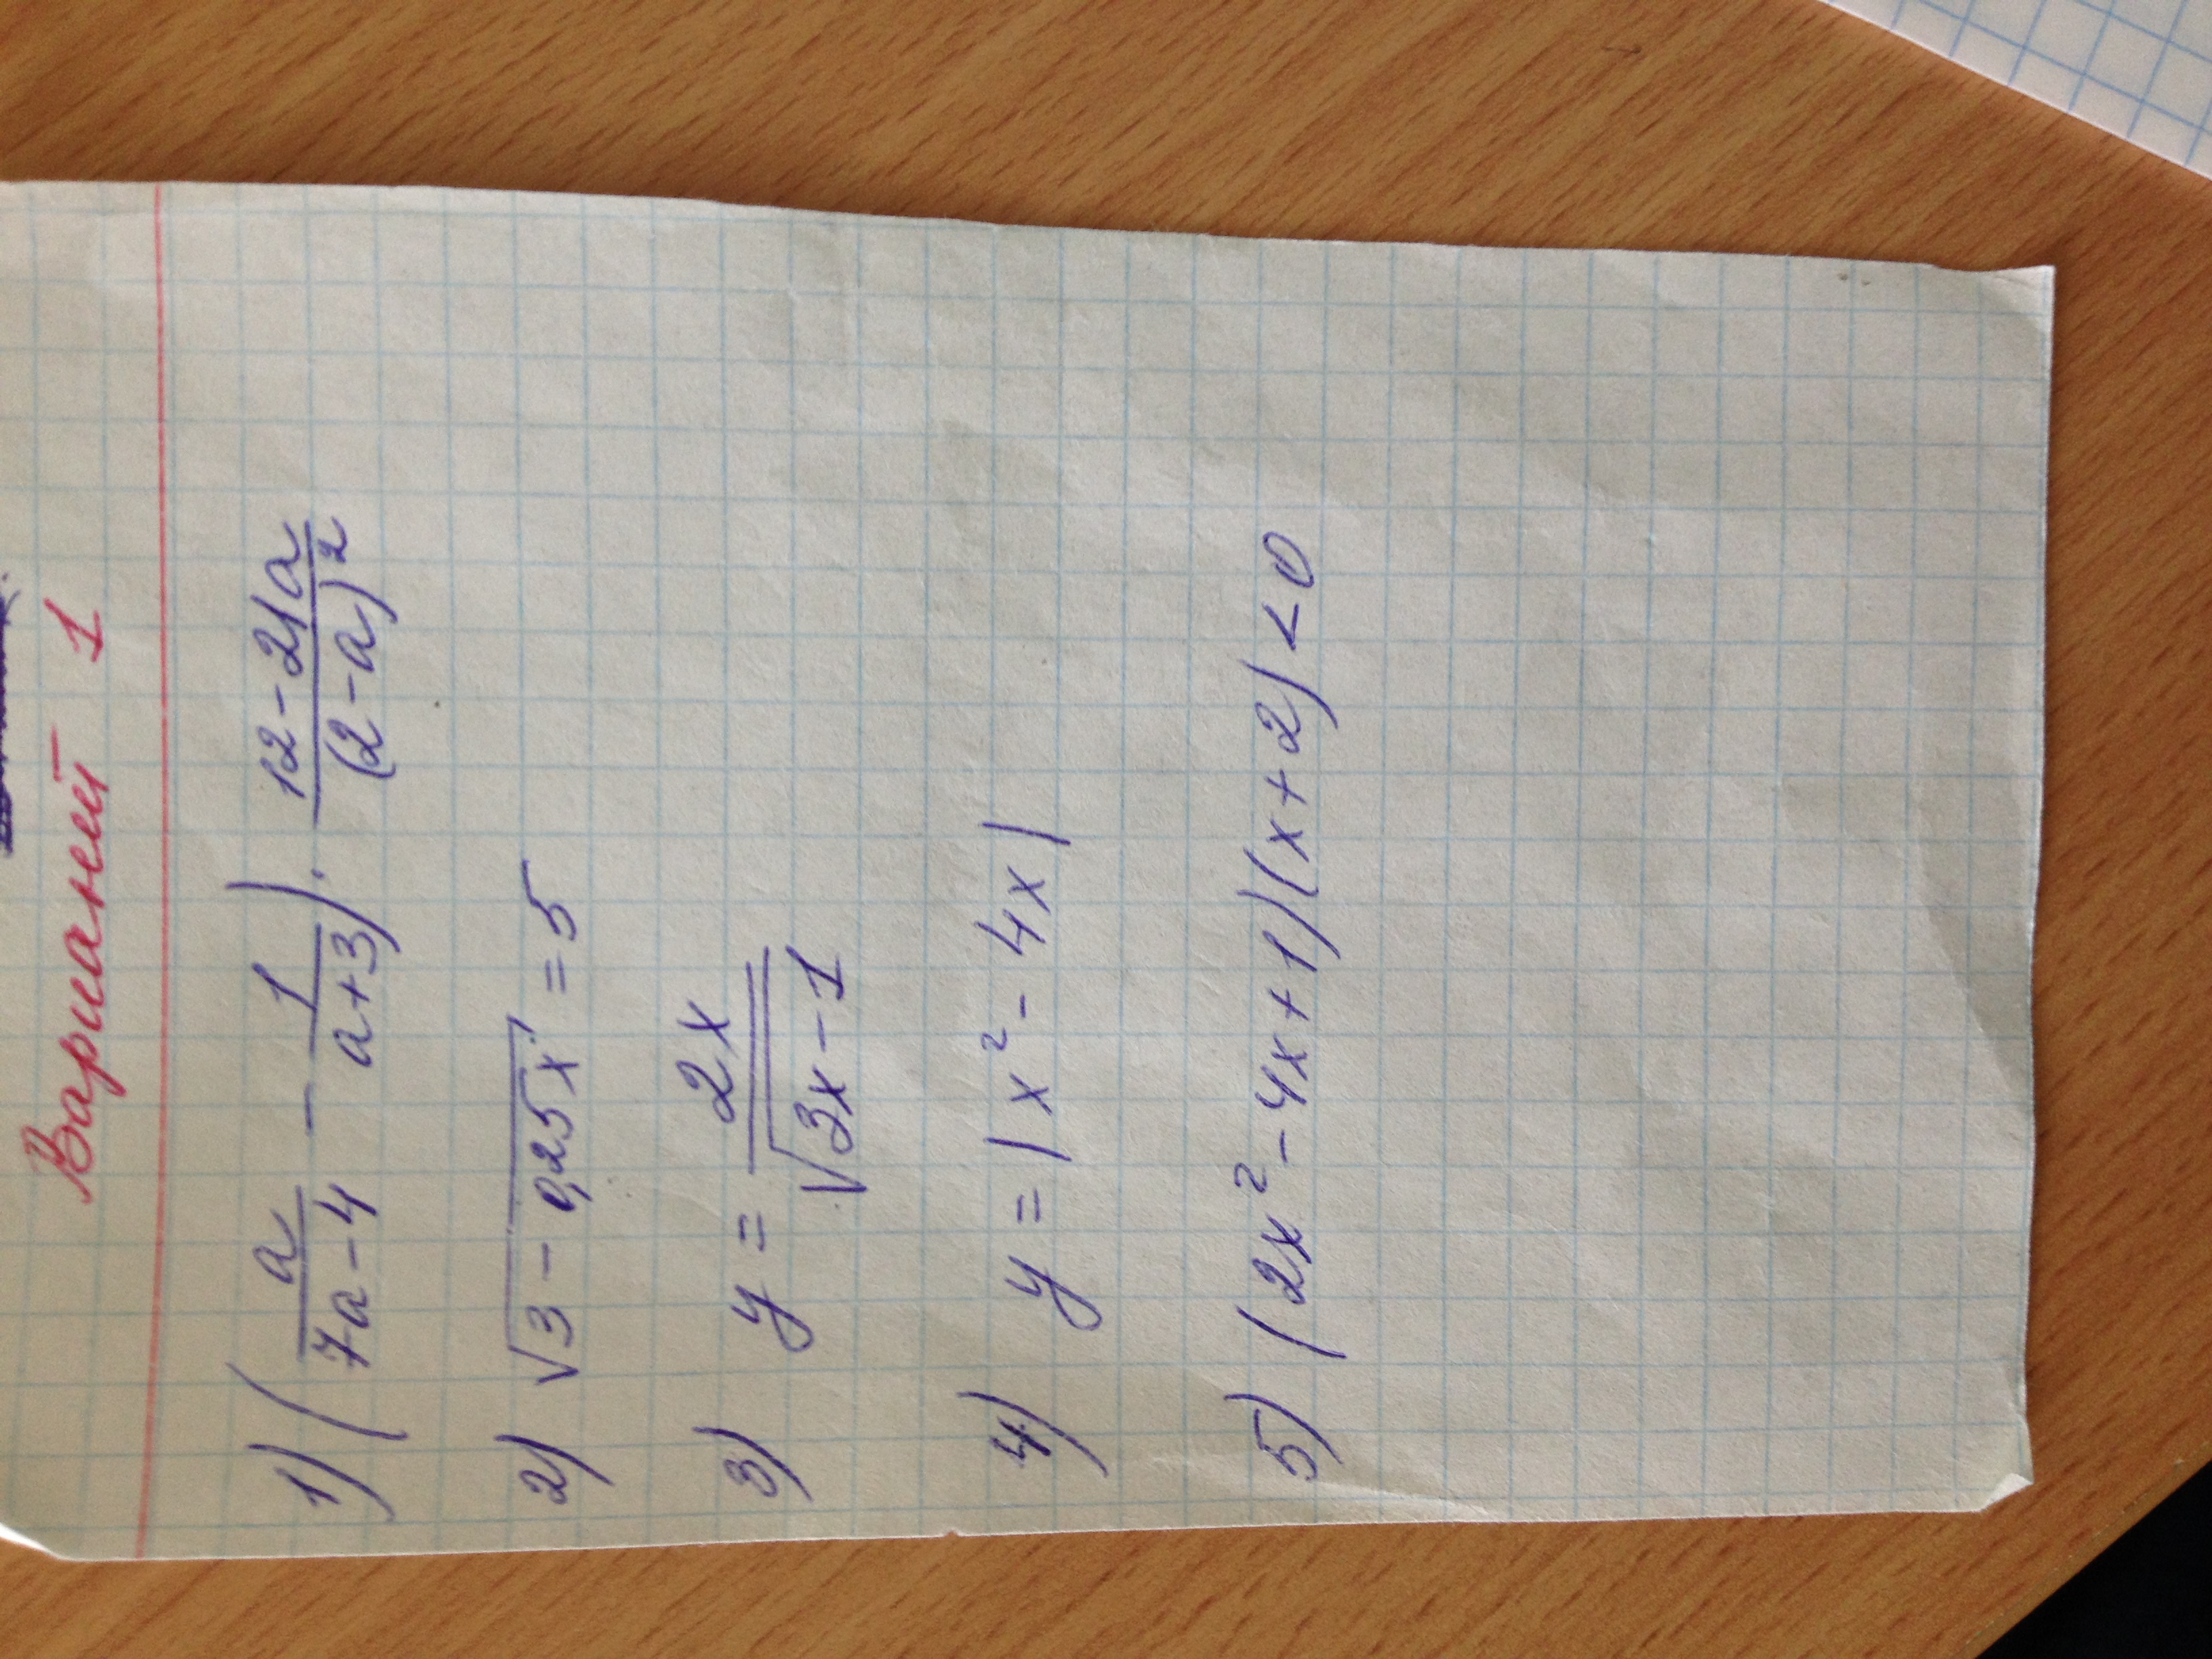 Вариант 1
1) (a/(7a-4) - 1/(a+3)) · (12-21a)/(2-a)²
2) √(3-0,25x) = 5
3) y = 2x/√(3x-1)
4) y = |x² - 4x|
5) (2x² - 4x + 1)(x + 2) < 0